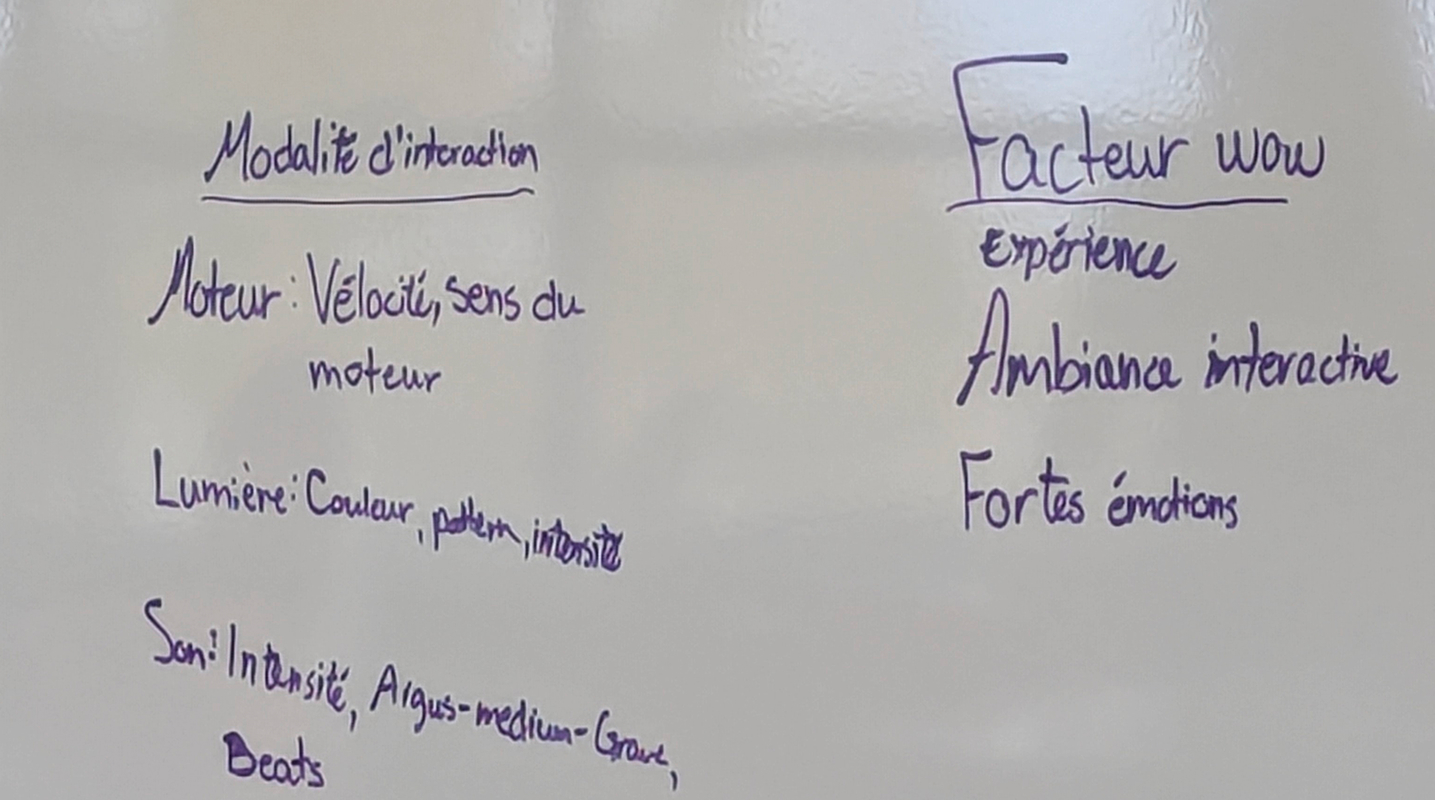 Modalité d'interaction
Moteur : Vélocité, sens du
moteur
Lumière : Couleur, pattern, intensité
Son : Intensité, Aigus-medium-Grave,
Beats
Facteur wow
Expérience
Ambiance interactive
Fortes émotions